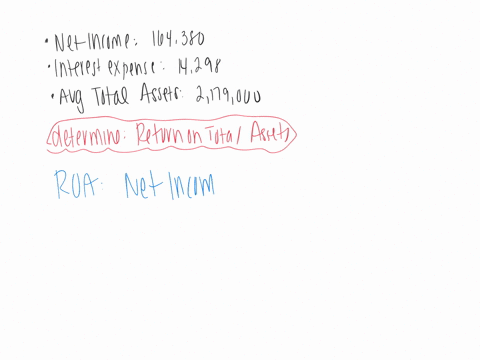 • Net Income: 164,380
• Interest expense: 14,298
• Avg Total Assets: 2,179,000
determine: Return on Total Assets
ROA: Net Incom